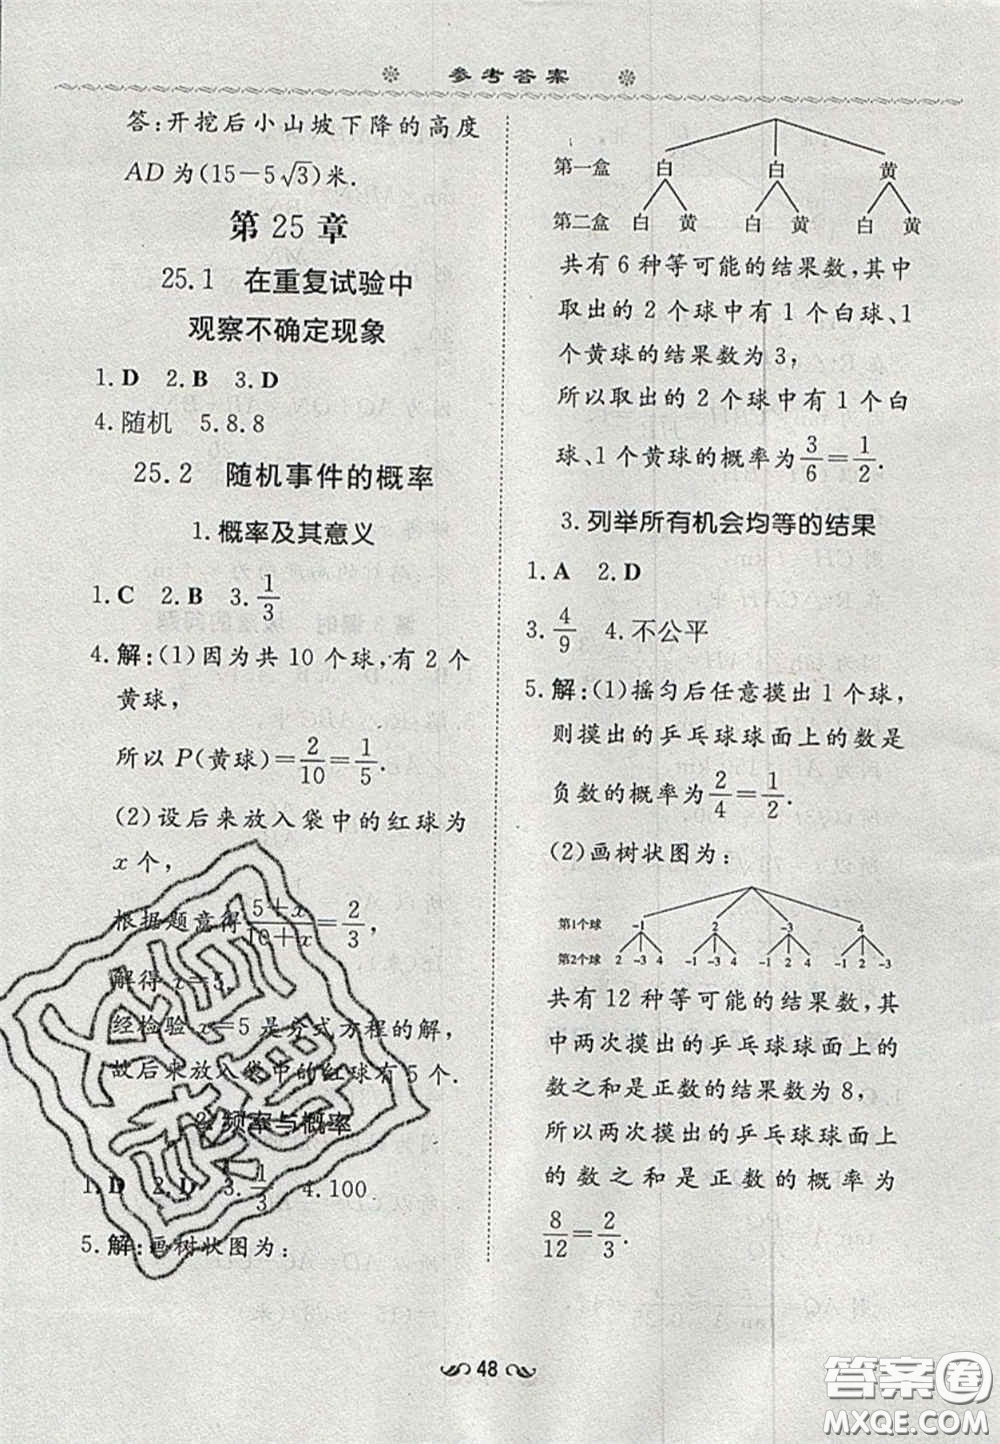 参考答案
答:开挖后小山坡下降的高度
AD为(15-5√3)米.
第25章
25.1 在重复试验中
观察不确定现象
1.D 2.B 3.D
4.随机 5.8.8
25.2 随机事件的概率
1.概率及其意义
1.C 2.B 3.1/3
4.解:(1)因为共10个球,有2个
黄球,
所以P(黄球)=2/10=1/5.
(2)设后来放入袋中的红球为
x个,
根据题意得(5+x)/(10+x)=2/3,
解得x=5,
经检验x=5是分式方程的解,
故后来放入袋中的红球有5个.
2.频率与概率
1.D 2.D 3.1/3 4.100
5.解:画树状图为:
第一盒 白 白 黄
第二盒 白 黄 白 黄 白 黄
共有6种等可能的结果数,其中
取出的2个球中有1个白球、1
个黄球的结果数为3,
所以取出的2个球中有1个白
球、1个黄球的概率为3/6=1/2.
3.列举所有机会均等的结果
1.A 2.D
3.4/9 4.不公平
5.解:(1)摇匀后任意摸出1个球,
则摸出的乒乓球球面上的数是
负数的概率为2/4=1/2.
(2)画树状图为:
第1个球 -1 2 -3 4
第2个球 2 -3 4 -1 -3 4 -1 2 4 -1 2 -3
共有12种等可能的结果数,其
中两次摸出的乒乓球球面上的
数之和是正数的结果数为8,
所以两次摸出的乒乓球球面上
的数之和是正数的概率为
8/12=2/3.
48
答案圈
MXQE.COM